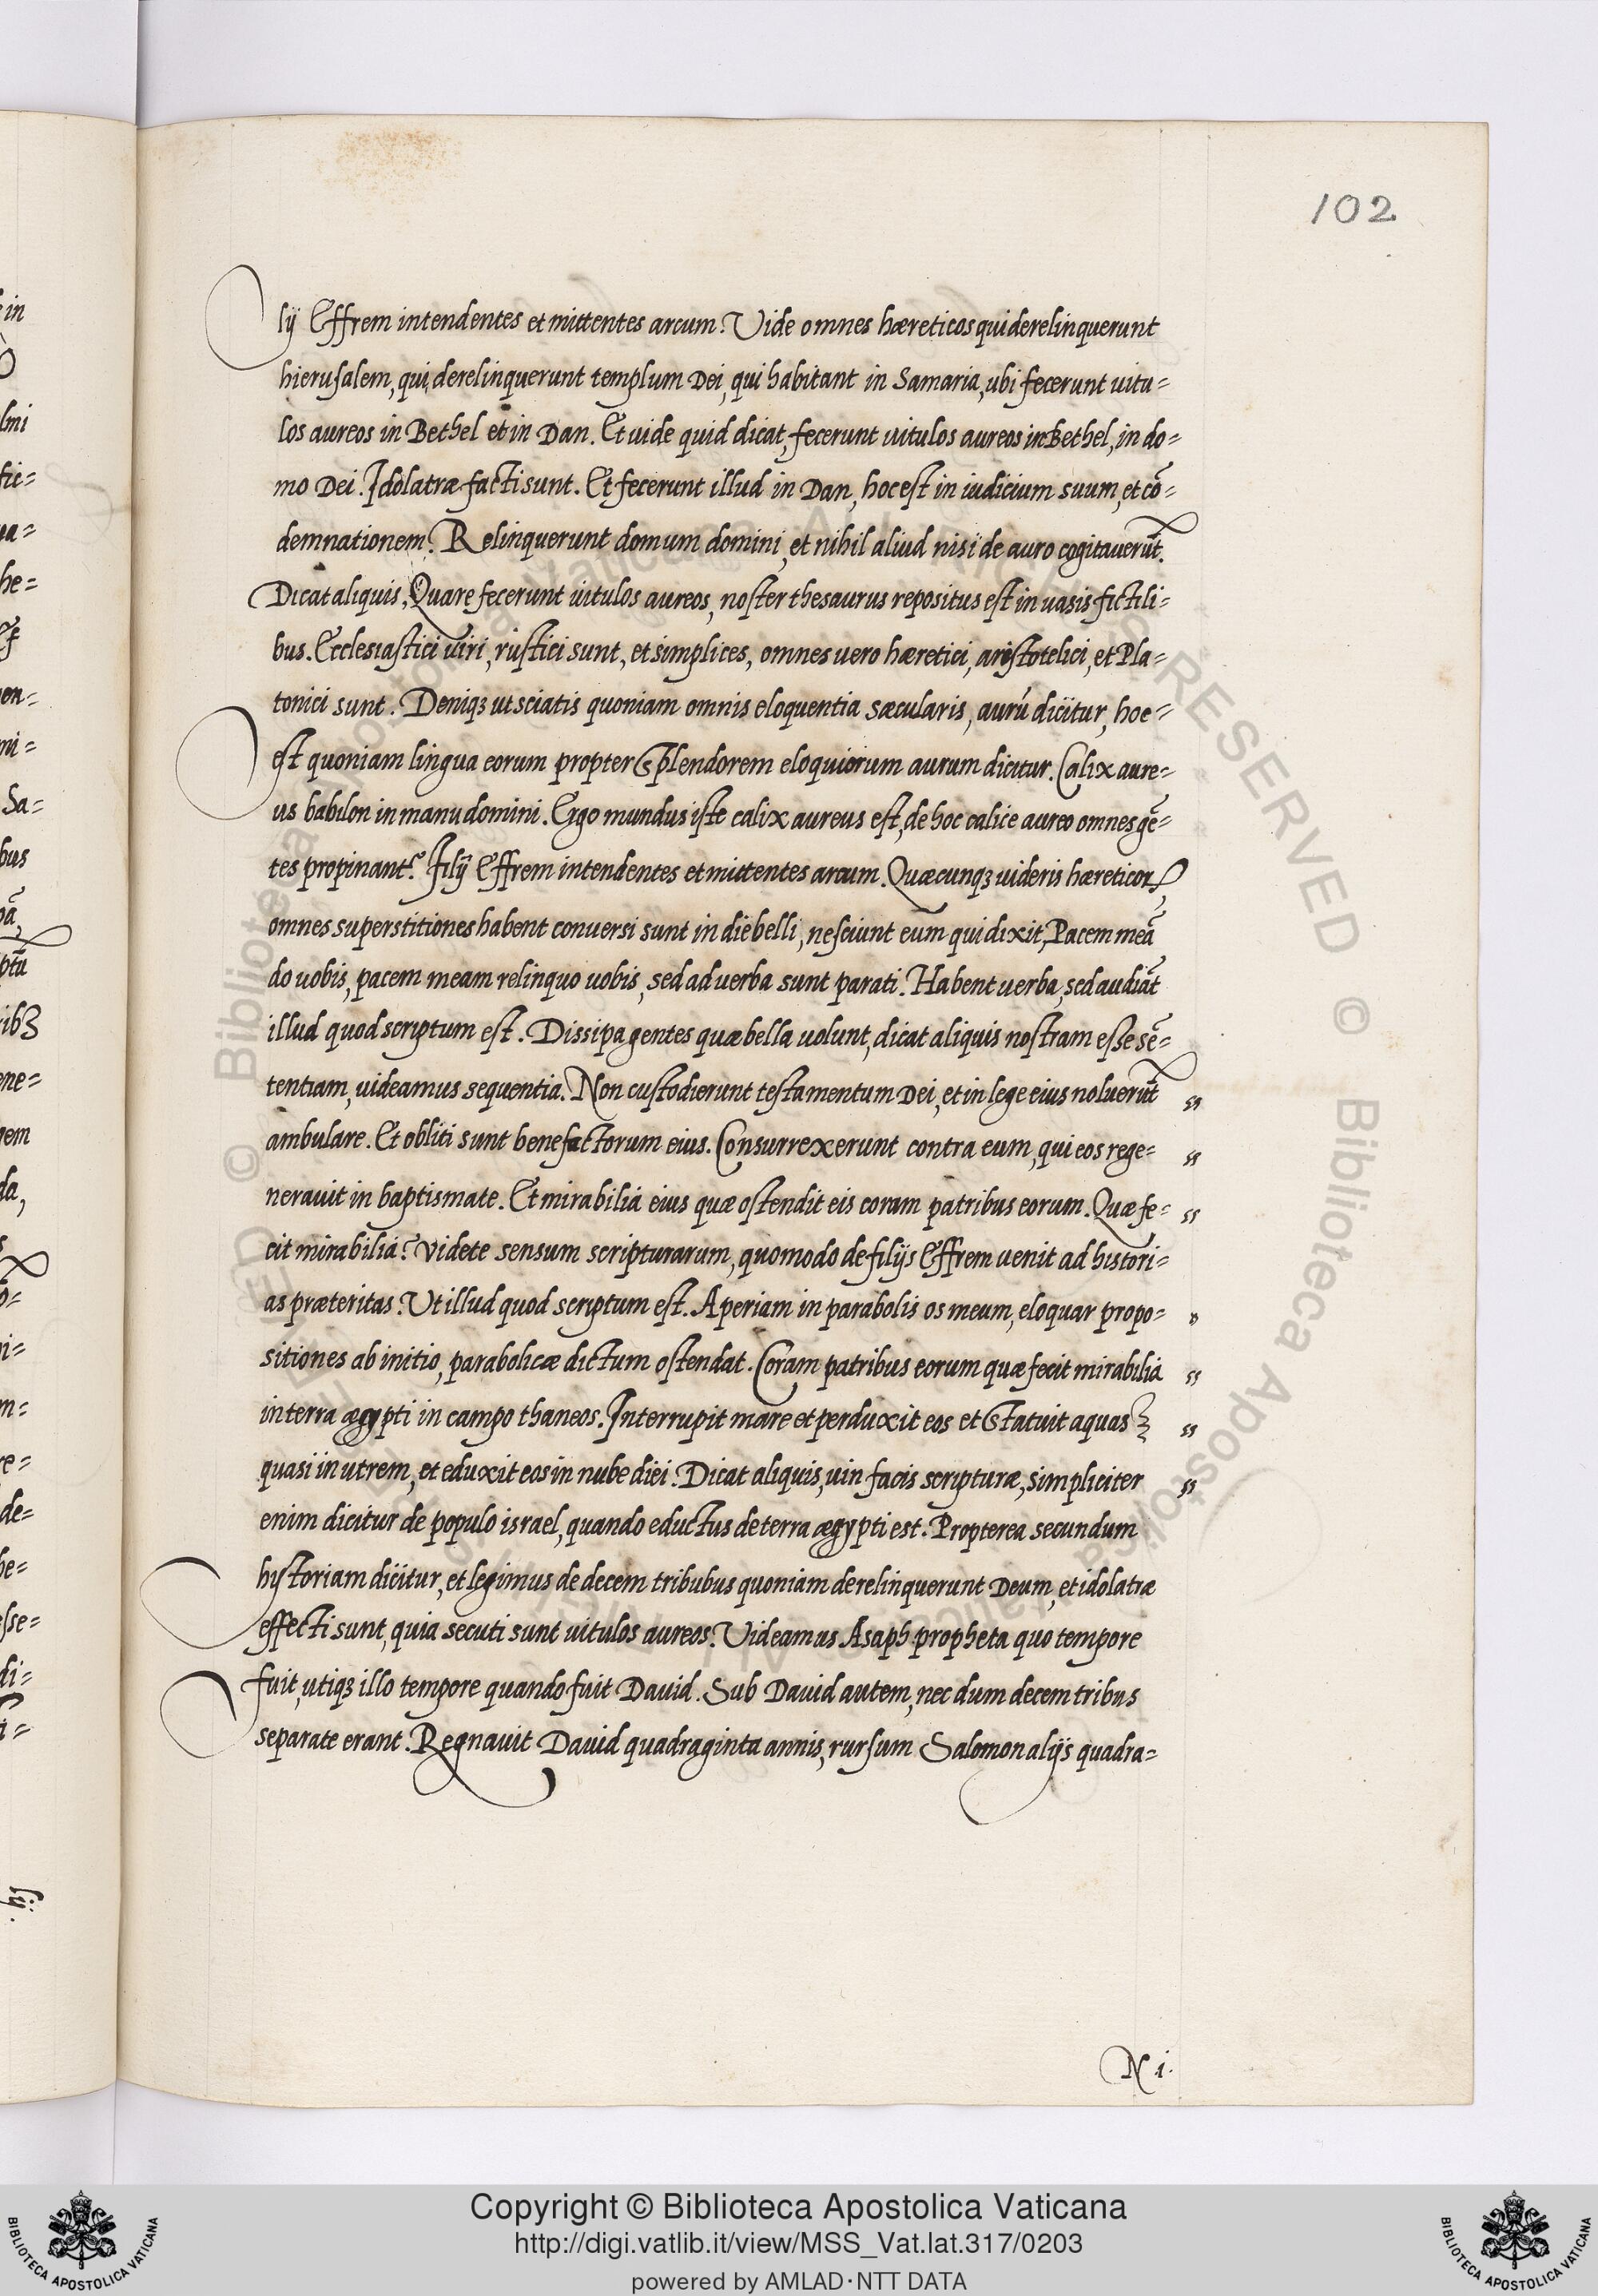 102
lij Effrem intendentes et mittentes arcum. Vide omnes hæreticos qui derelinquerunt
hierusalem, qui derelinquerunt templum Dei, qui habitant in Samaria, ubi fecerunt uitu=
los aureos in Bethel et in Dan. Et uide quid dicat, fecerunt uitulos aureos in Bethel, in do=
mo Dei. Idolatræ facti sunt. Et fecerunt illud in Dan, hoc est in iudicium suum, et cō=
demnationem. Relinquerunt domum domini, et nihil aliud nisi de auro cogitauerūt.
Dicat aliquis, Quare fecerunt uitulos aureos, noster thesaurus repositus est in uasis fictili=
bus. Ecclesiastici uiri, rustici sunt, et simplices, omnes uero hæretici, aristotelici, et Pla=
tonici sunt. Deniqꝫ ut sciatis quoniam omnis eloquentia sæcularis, aurū dicitur, hoc=
est quoniam lingua eorum propter splendorem eloquiorum aurum dicitur. Calix aure=
us babilon in manu domini. Ergo mundus iste calix aureus est, de hoc calice aureo omnes gē=
tes propinant.ʳ Filij Effrem intendentes et mittentes arcum. Quæcunqꝫ uideris hæreticoꝝ
omnes superstitiones habent conuersi sunt in die belli, nesciunt eum qui dixit, Pacem meā
do uobis, pacem meam relinquo uobis, sed ad uerba sunt parati. Habent uerba, sed audiāt
illud quod scriptum est. Dissipa gentes quæ bella uolunt, dicat aliquis nostram esse sē=
tentiam, uideamus sequentia. Non custodierunt testamentum Dei, et in lege eius noluerūt "
ambulare. Et obliti sunt benefactorum eius. Consurrexerunt contra eum, qui eos rege= "
nerauit in baptismate. Et mirabilia eius quæ ostendit eis coram patribus eorum. Quæ fe= "
cit mirabilia? videte sensum scripturarum, quomodo de filijs Effrem uenit ad histori=
as præteritas. Ut illud quod scriptum est. Aperiam in parabolis os meum, eloquar propo= "
sitiones ab initio, parabolicæ dictum ostendat. Coram patribus eorum quæ fecit mirabilia "
in terra ægypti in campo thaneos. Interrupit mare et perduxit eos et statuit aquas "
quasi in utrem, et eduxit eos in nube diei. Dicat aliquis, uin facis scripturæ, simpliciter "
enim dicitur de populo israel, quando eductus de terra ægypti est. Propterea secundum
hystoriam dicitur, et legimus de decem tribubus quoniam derelinquerunt Deum, et idolatræ
effecti sunt, quia secuti sunt uitulos aureos. Uideamus Asaph propheta quo tempore
fuit, utiqꝫ illo tempore quando fuit Dauid. Sub Dauid autem, nec dum decem tribus
separate erant. Regnauit Dauid quadraginta annis, rursum Salomon alijs quadra=
N i.
Copyright © Biblioteca Apostolica Vaticana
http://digi.vatlib.it/view/MSS_Vat.lat.317/0203
powered by AMLAD·NTT DATA
BIBLIOTECA APOSTOLICA VATICANA
BIBLIOTECA APOSTOLICA VATICANA